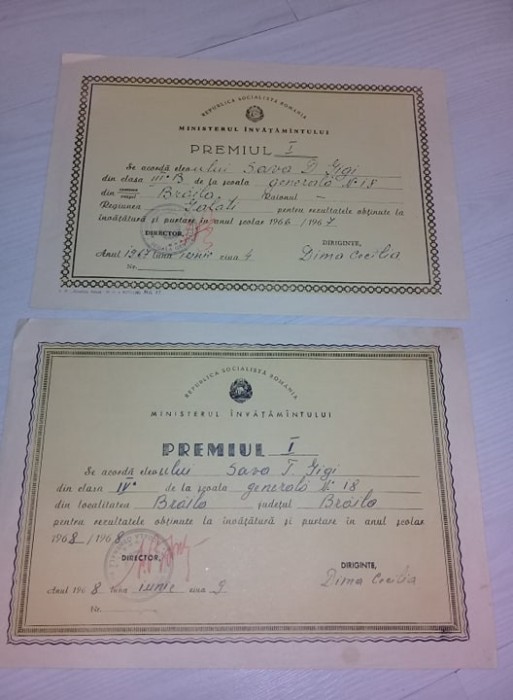 REPUBLICA SOCIALISTA ROMANIA
MINISTERUL ÎNVĂȚĂMÎNTULUI
PREMIUL I
Se acordă elevului Sava T. Gigi
din clasa III B de la școala generală Nº 18
din orașul Brăila Raionul —
Regiunea Galați pentru rezultatele obținute la
învățătură și purtare în anul școlar 1966/1967
DIRECTOR,
DIRIGINTE,
Anul 1967 luna iunie ziua
Dima Cecilia
Nr.
REPUBLICA SOCIALISTA ROMANIA
MINISTERUL ÎNVĂȚĂMÎNTULUI
PREMIUL I
Se acordă elevului Sava T. Gigi
din clasa IV de la școala generală Nº 18
din localitatea Brăila județul Brăila
pentru rezultatele obținute la învățătură și purtare în anul școlar
1968/1968
DIRECTOR,
DIRIGINTE,
Anul 1968 luna iunie ziua 9
Dima Cecilia
Nr.